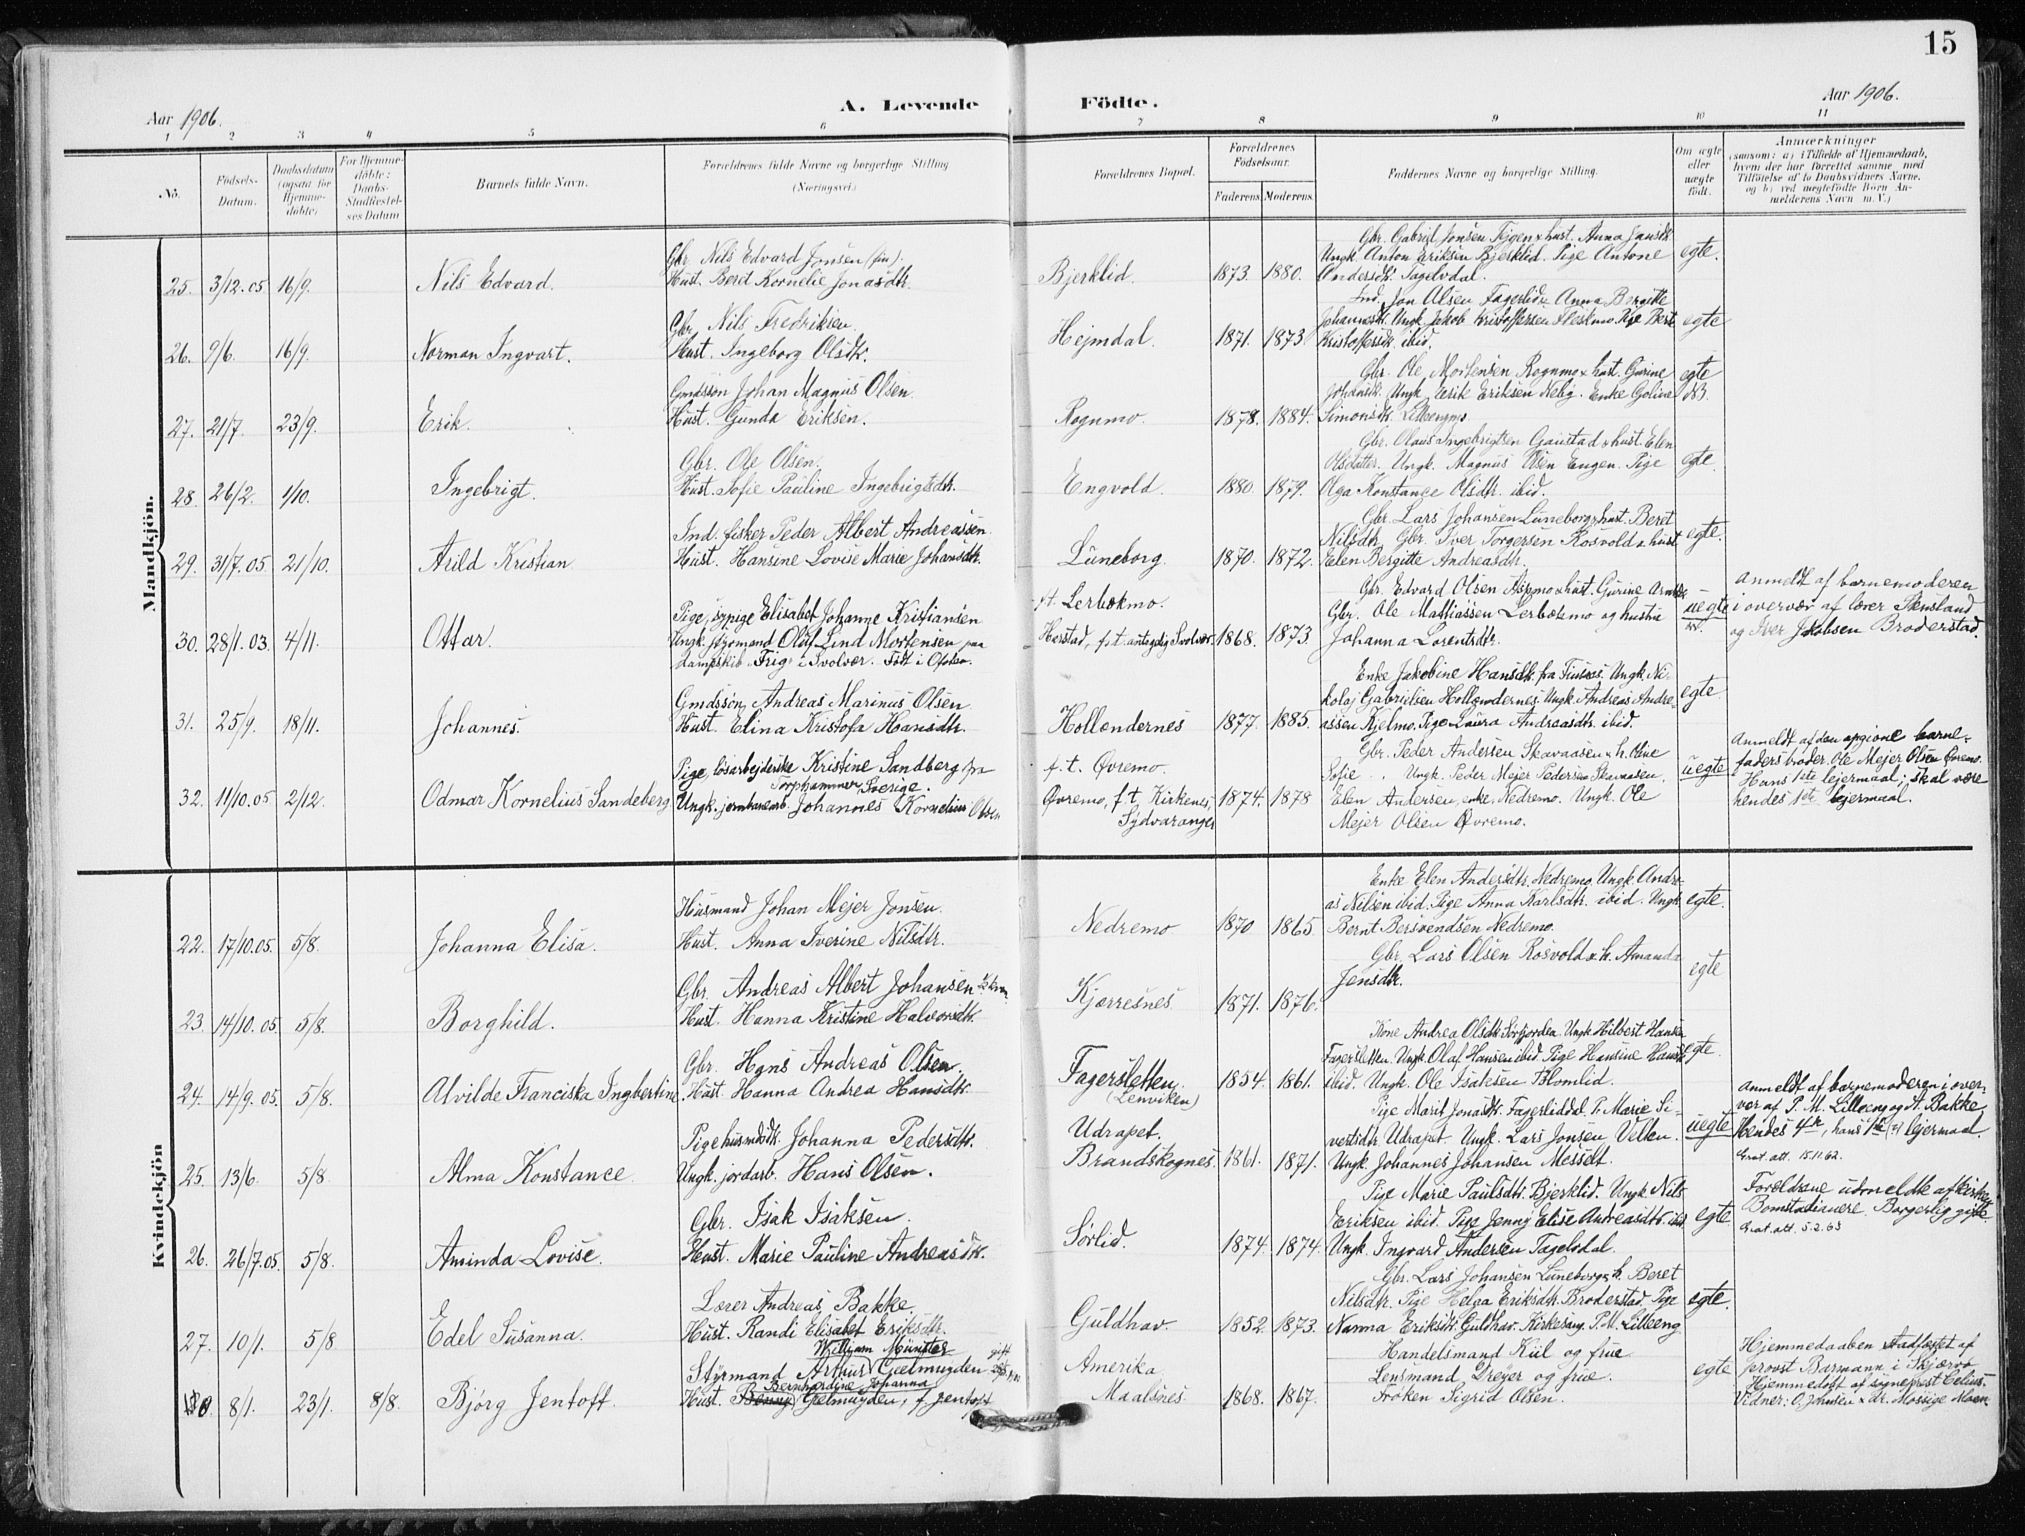 15
Aar 1906.
A. Levende
Födte.
Aar 1906.
1 2 3 4 5 6 7 8 9 10 11
No.
Födsels-
Datum.
Daabsdatum
(ogsaa for
Hjemme-
döbte)
For Hjemme-
döbte:
Daabs-
Stadfæstel-
ses Datum
Barnets fulde Navn.
Forældrenes fulde Navne og borgerlige Stilling
(Næringsvei.)
Forældrenes Bopæl.
Forældrenes
Födselsaar.
Faderens
Moderens
Faddernes Navne og borgerlige Stilling.
Om ægte
eller
uægte
födt.
Anmærkninger
(saasom: a) i Tilfælde af Hjemmedaab,
hvem der har forrettet samme med
Tilföielse af to Daabsvidners Navne,
og b) ved uægtefödte Börn An-
melderens Navn m. V.)
Mandkjön.
25. 3/12.05 16/9. Nils Edvard.
Gbr. Nils Edvard Jonsen (fin).
Hust. Beret Kornelie Jonasdtr.
Bjerklid. 1873. 1880.
Gbr. Gabriel Jonsen & hust. Anna
Ungk. Anton Eriksen Bjerklid. Pige Antone
Andersdtr. Tagelvdal.
egte.
26. 9/6. 16/9. Norman Ingvart.
Gbr. Nils Fredriksen.
Hust. Ingeborg Olsdtr.
Hejmdal. 1871. 1873
Ind. Jon Olsen Fagerlid & Anna Bergitte
Johannesdtr. Ungk. Jakob Kristoffersen Pige Beret
Kristoffersdtr. ibid.
egte
27. 21/7. 23/9. Erik.
Gmdssøn Johan Magnus Olsen.
Hust. Gunda Eriksen.
Rognmo. 1878. 1884.
Gbr. Ole Mortensen Rognmo & hust. Gurine
Johansdtr. Ungk. Erik Eriksen Enke Goline
Simonsdtr.
egte
28. 26/2. 1/10. Ingebrigt.
Gbr. Ole Olsen.
Hust. Sofie Pauline Ingebrigtsdtr.
Engvold. 1880. 1879.
Gbr. Olaus Ingebrigtsen Gaustad & hust. Elen
Olsdatter. Ungk. Magnus Olsen Eugen. Pige
Olga Konstance Olsdtr. ibid.
egte.
29. 31/7.05 21/10. Arild Kristian
Ind. fisker Peder Albert Andreassen
Hust. Hansine Lovise Marie Johansdtr.
Lüneborg. 1870. 1872.
Gbr. Lars Johansen Lüneborg & hust. Beret
Nilsdtr. Gbr. Iver Torgersen Rosvold & hust.
Elen Bergitte Andreasdtr.
egte.
30. 28/1.03. 4/11. Ottar.
Pige, sypige Elisabet Johanne Kristiansen
Ungk. styrmand Oluf Lind Mortensen paa
dampskib "Frig" i Svolvær. Født i Ofoten.
f.t. Lerbækmo.
Harstad, f.t. antagelig Svolvær. 1868. 1873
Gbr. Edvard Olsen Aspmo & hust. Gurine
Gbr. Ole Mathiassen Lerbækmo og hustru
Johanna Lorentsdtr.
uegte
Anmeldt af barnemoderen
i overvær af lærer Skusland
og Iver Jakobsen Broderstad.
31. 25/9. 18/11. Johannes.
Gmdssøn Andreas Marinus Olsen
Hust. Elina Kristofa Hansdtr.
Hollendernes 1877. 1885.
Enke Jakobine Hansdtr. fra Finsæs. Ungk. Ni-
kolaj Gabrielsen Hollendernes. Ungk. Andreas Andre-
assen Kjelmo. Pige Laura Andreasdtr. ibid.
egte
32. 11/10.05 2/12. Odmar Kornelius Sandeberg
Pige, løsarbejderske Kristine Sandberg fra
Torphammer, Sverige.
Ungk. jernbanearb. Johannes Kornelius Olsen
f.t. Øvremo.
Øvremo, f.t. Kirkenes,
Sydvaranger 1874. 1878
Gbr. Peder Andersen Skavaasen & h. Oline
Sofie Ungk. Peder Mejer Pedersen Skavaasen.
Elen Andersen, enke, Nedremo. Ungk. Ole
Mejer Olsen Øvremo.
uegte
Anmeldt af den opgivne barne-
faders broder Ole Mejer Olsen Øvremo.
Hans 1ste lejermaal; skal være
hendes 1ste lejermaal.
Kvindekjön
22. 17/10.05. 5/8. Johanna Elisa.
Husmand Johan Mejer Jonsen.
Hust. Anna Iverine Nilsdtr.
Nedremo 1870 1865
Enke Elen Andersdtr. Nedremo. Ungk. Andre-
as Nilsen ibid. Pige Anna Karlsdtr. ibid. Ungk.
Bernt Bersvendsen Nedremo.
egte.
23. 14/10.05. 5/8. Borghild.
Gbr. Andreas Albert Johansen
Hust. Hanna Kristine Halvorsdtr.
Kjærresnes 1871. 1876.
Gbr. Lars Olsen Rosvold & h. Amanda
Jensdtr.
egte
24. 14/9.05. 5/8. Alvilde Franciska Ingbertine
Gbr. Hans Andreas Olsen.
Hust. Hanna Andrea Hansdtr.
Fagersletten.
(Lenviken) 1854. 1861.
Kone Andrea Olsdtr. Sørfjorden. Ungk. Hilbert Hansen
Fagersletten. Ungk. Olaf Hansen ibid. Pige Hansine Hansdtr.
ibid. Ungk. Ole Isaksen Blomlid.
egte.
25. 13/6. 5/8. Alma Konstance.
Pige husmdsdtr. Johanna Pedersdtr.
Ungk. jordarb. Hans Olsen.
Udrapet.
Brandskognes. 1861. 1871.
Pige Marit Jonasdtr. Fagerliddal. P. Marie Si-
vertsdtr. Udrapet. Ungk. Lars Jonsen Velten.
Ungk. Johannes Johansen Messelt.
uegte
Anmeldt af barnemoderen i over-
vær af P. M. Lilleeng og A. Bakke
Hendes 4de, hans 1ste (?) lejermaal.
Grat. att. 15.11.62.
26. 26/7.05. 5/8. Aminda Lovise.
Gbr. Isak Isaksen.
Hust. Marie Pauline Andreasdtr.
Sørlid. 1874. 1874.
Pige Marie Paulsdtr. Bjerklid. Ungk. Nils
Eriksen ibid. Pige Jenny Elise Andreasdtr. ibid.
Ungk. Ingvard Andersen Tagelvdal.
egte
Forældrene udmeldte af kirken
Borgerlig gifte
Grat. att. 5.2.63
27. 10/1. 5/8. Edel Susanna.
Lærer Andreas Bakke.
Hust. Randi Elisabet Eriksdtr.
Guldhav. 1852. 1873.
Gbr. Lars Johansen Lüneborg & h. Beret
Nilsdtr. Pige Helga Eriksdtr. Broderstad. Pige
Nanna Eriksdtr. Guldhav. Kirkesang. P.M. Lilleeng
egte.
28. 8/1. 23/1. 8/8. Bjørg Jentoft.
William Munster
Styrmand Arthur Geelmuyden
Bernhardine Johanna
Hust. Geelmuyden, f. Jentoft
Amerika
Maalsnes. 1868. 1867.
Handelsmand Kiil og frue
Lensmand Dreyer og frue.
Frøken Sigrid Olsen.
egte
Hjemmedaaben stadfæstet af
provst Barmann i Skjærvø
Hjemmedøbt af sogneprest
Vidner: O. Johnsen & dr. Mossige